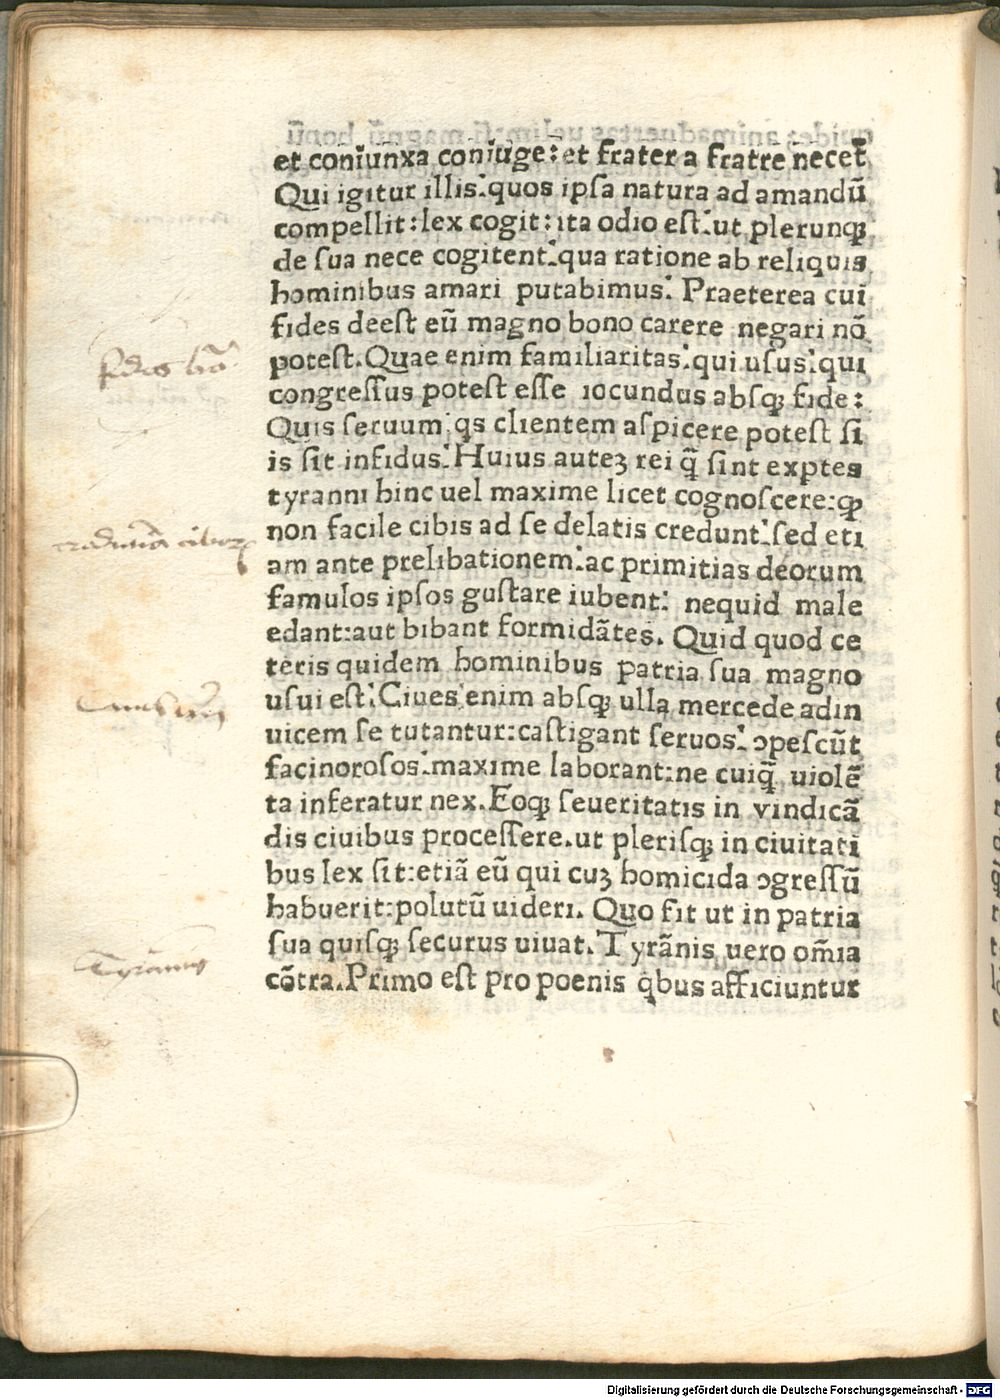 et coniunxa coniuge: et frater a fratre necet̃
Qui igitur illis: quos ipſa natura ad amandũ
compellit: lex cogit: ita odio eſt: ut plerunqꝫ
de ſua nece cogitent: qua ratione ab reliquis
hominibus amari putabimus: Praeterea cui
fides deeſt eũ magno bono carere negari nõ
poteſt. Quae enim familiaritas: qui uſus: qui
congreſſus poteſt eſſe iocundus abſqꝫ fide:
Quis ſeruum: qs clientem aſpicere poteſt ſi
is ſit infidus: Huius auteꝫ rei q̃ ſint exꝑtes
tyranni hinc uel maxime licet cognoſcere: ꝙ
non facile cibis ad ſe delatis credunt: ſed eti
am ante prelibationem: ac primitias deorum
famulos ipſos guſtare iubent: nequid male
edant: aut bibant formidãtes. Quid quod ce
teris quidem hominibus patria ſua magno
uſui eſt: Ciues enim abſqꝫ ulla mercede adin
uicem ſe tutantur: caſtigant ſeruos: ꝯpeſcũt
facinoroſos: maxime laborant: ne cuiq̃ uiolẽ
ta inferatur nex. Eoqꝫ ſeueritatis in vindicã
dis ciuibus proceſſere. ut pleriſqꝫ in ciuitati
bus lex ſit: etiã eũ qui cuꝫ homicida ꝯgreſſũ
habuerit: polutũ uideri. Quo fit ut in patria
ſua quiſqꝫ ſecurus uiuat. Tyrãnis uero om̃ia
cõtra. Primo eſt pro poenis qbus afficiuntur
Tyrannis
Digitalisierung gefördert durch die Deutsche Forschungsgemeinschaft - DFG